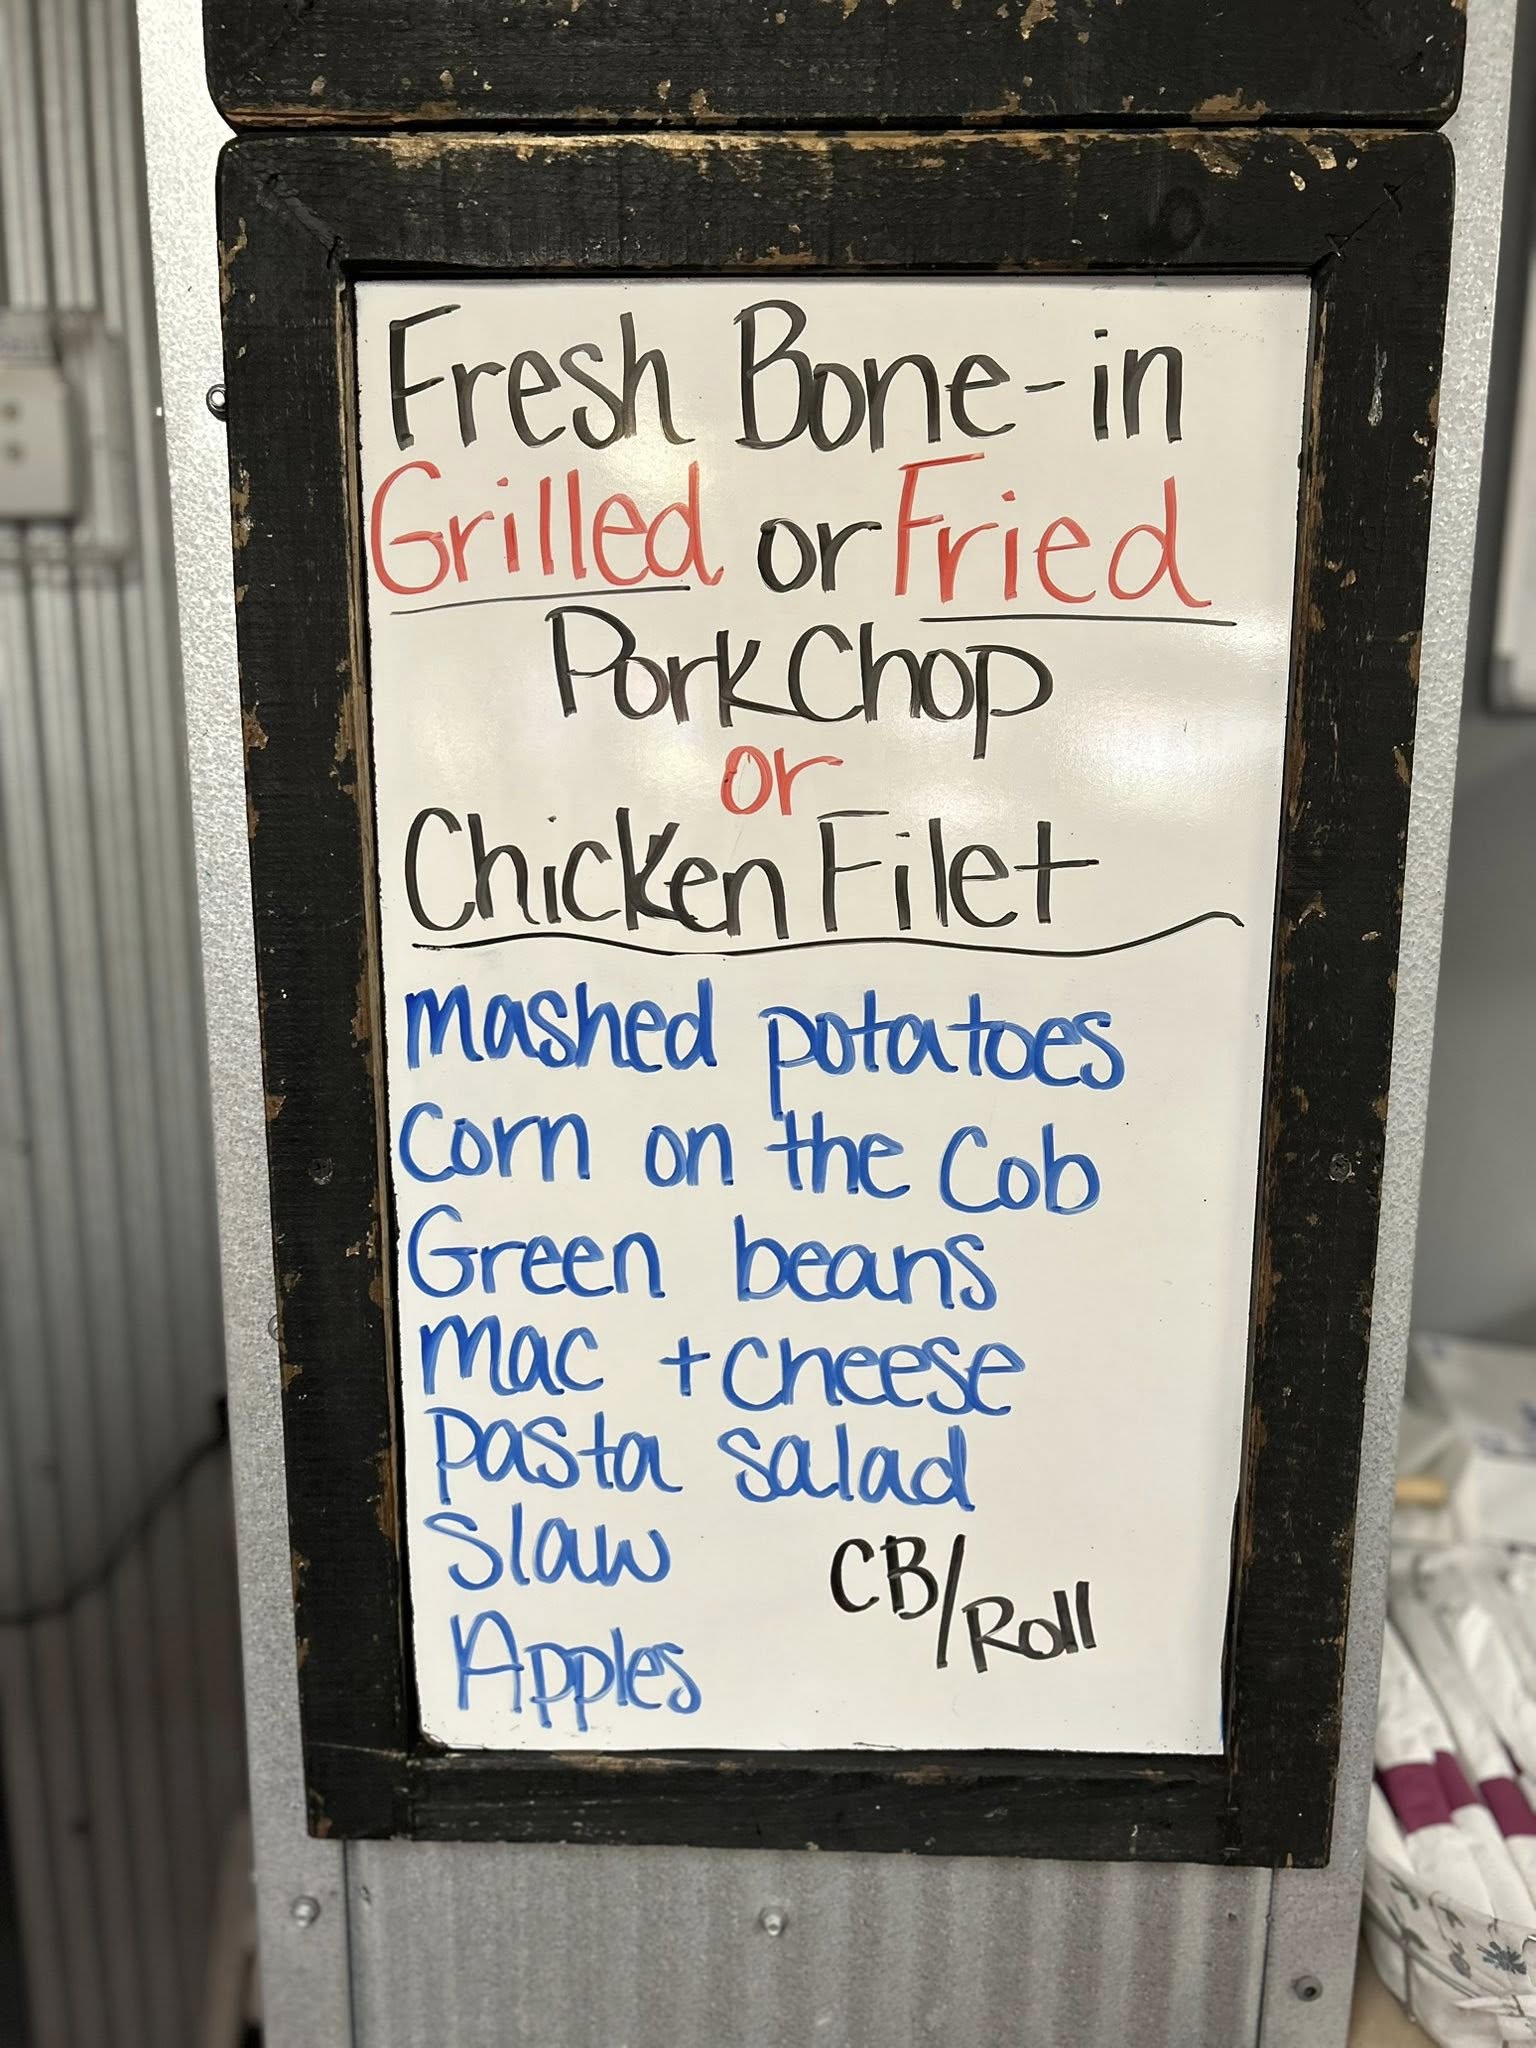 Fresh Bone-in
Grilled or Fried
Pork Chop
or
Chicken Filet
Mashed potatoes
Corn on the Cob
Green beans
Mac + cheese
Pasta salad
Slaw
CB/Roll
Apples